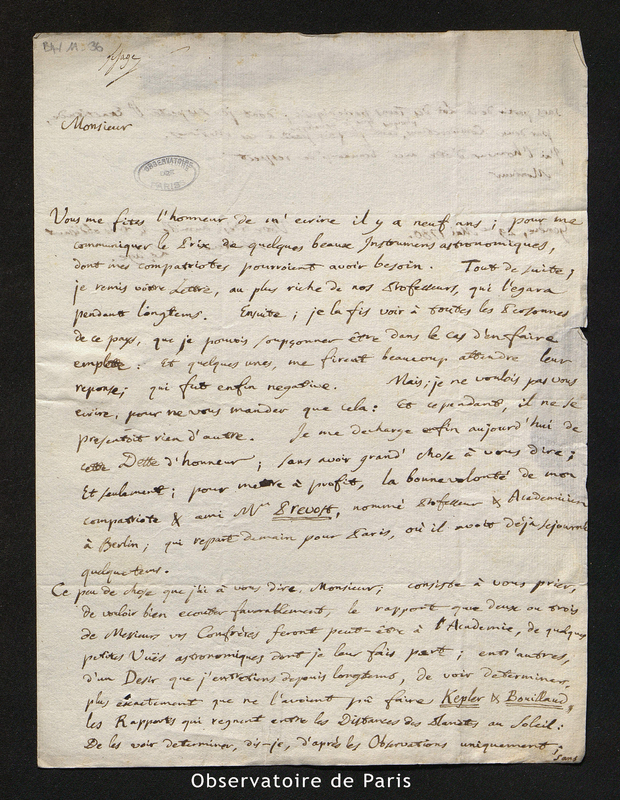 B4/ 11-36
Monsieur
OBSERVATOIRE
DE
PARIS
Vous me fites l'honneur de m'ecrire il y a neuf ans ; pour me
communiquer le Prix de quelques beaux Instrumens astronomiques,
dont mes compatriotes pourroient avoir besoin. Tout de suite ;
je remis vôtre Lettre, au plus riche de nos Professeurs, qui l'egara
pendant longtems. Ensuite ; je la fis voir à toutes les Personnes
de ce pays, que je pouvois soupçonner être dans le cas d'en faire
emplette : Et quelques unes, me firent beaucoup attendre leur
reponse ; qui fut enfin negative. Mais, je ne voulois pas vous
ecrire, pour ne vous mander que cela : Et cependant, il ne se
presentoit rien d'autre. Je me decharge enfin aujourd'hui de
cette Dette d'honneur ; sans avoir grand' chose à vous dire ;
Et seulement ; pour mettre à profit, la bonne volonté de mon
compatriote & ami Mr Prevost, nommé Professeur & Academicien
à Berlin ; qui repart demain pour Paris, où il avoit déjà sejourné
quelque tems.
Ce peu de chose que j'ai à vous dire, Monsieur ; consiste à vous prier,
de vouloir bien ecouter favorablement, le rapport que deux ou trois
de Messieurs vos Confrères feront peut-être à l'Academie, de quelques
petites Vuës astronomiques dont je leur fais part ; entr'autres,
d'un Desir que j'entretiens depuis longtems, de voir determiner,
plus exactement que ne l'avoient pû faire Kepler & Bouillaud,
les Rapports qui regnent entre les Distances des Planètes au Soleil :
De les voir determiner, dis-je, d'après les Observations uniquement ;
sans
Observatoire de Paris